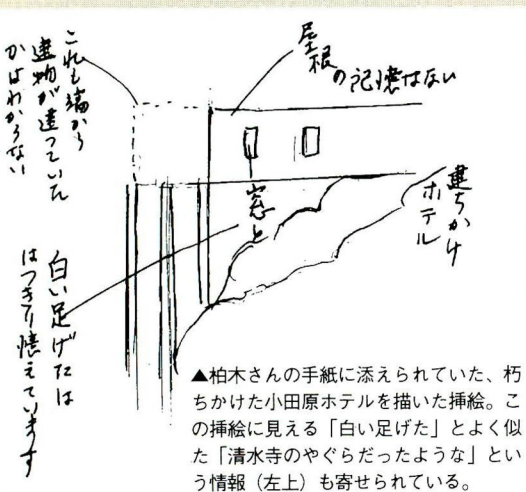 屋根
の記憶はない
これも端から
建物が建っていた
かはわからない
建ちかけ
ホテル
窓と
白い足げたは
はっきり憶えています
▲柏木さんの手紙に添えられていた、朽
ちかけた小田原ホテルを描いた挿絵。こ
の挿絵に見える「白い足げた」とよく似
た「清水寺のやぐらだったような」とい
う情報（左上）も寄せられている。